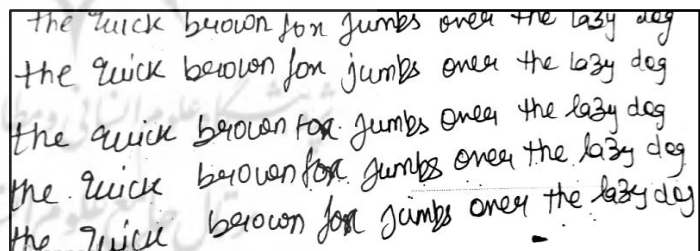 the quick brown fox jumps over the lazy dog
the quick brown fox jumps over the lazy dog
the quick brown fox jumps over the lazy dog
the quick brown fox jumps over the lazy dog
the quick brown fox jumps over the lazy dog